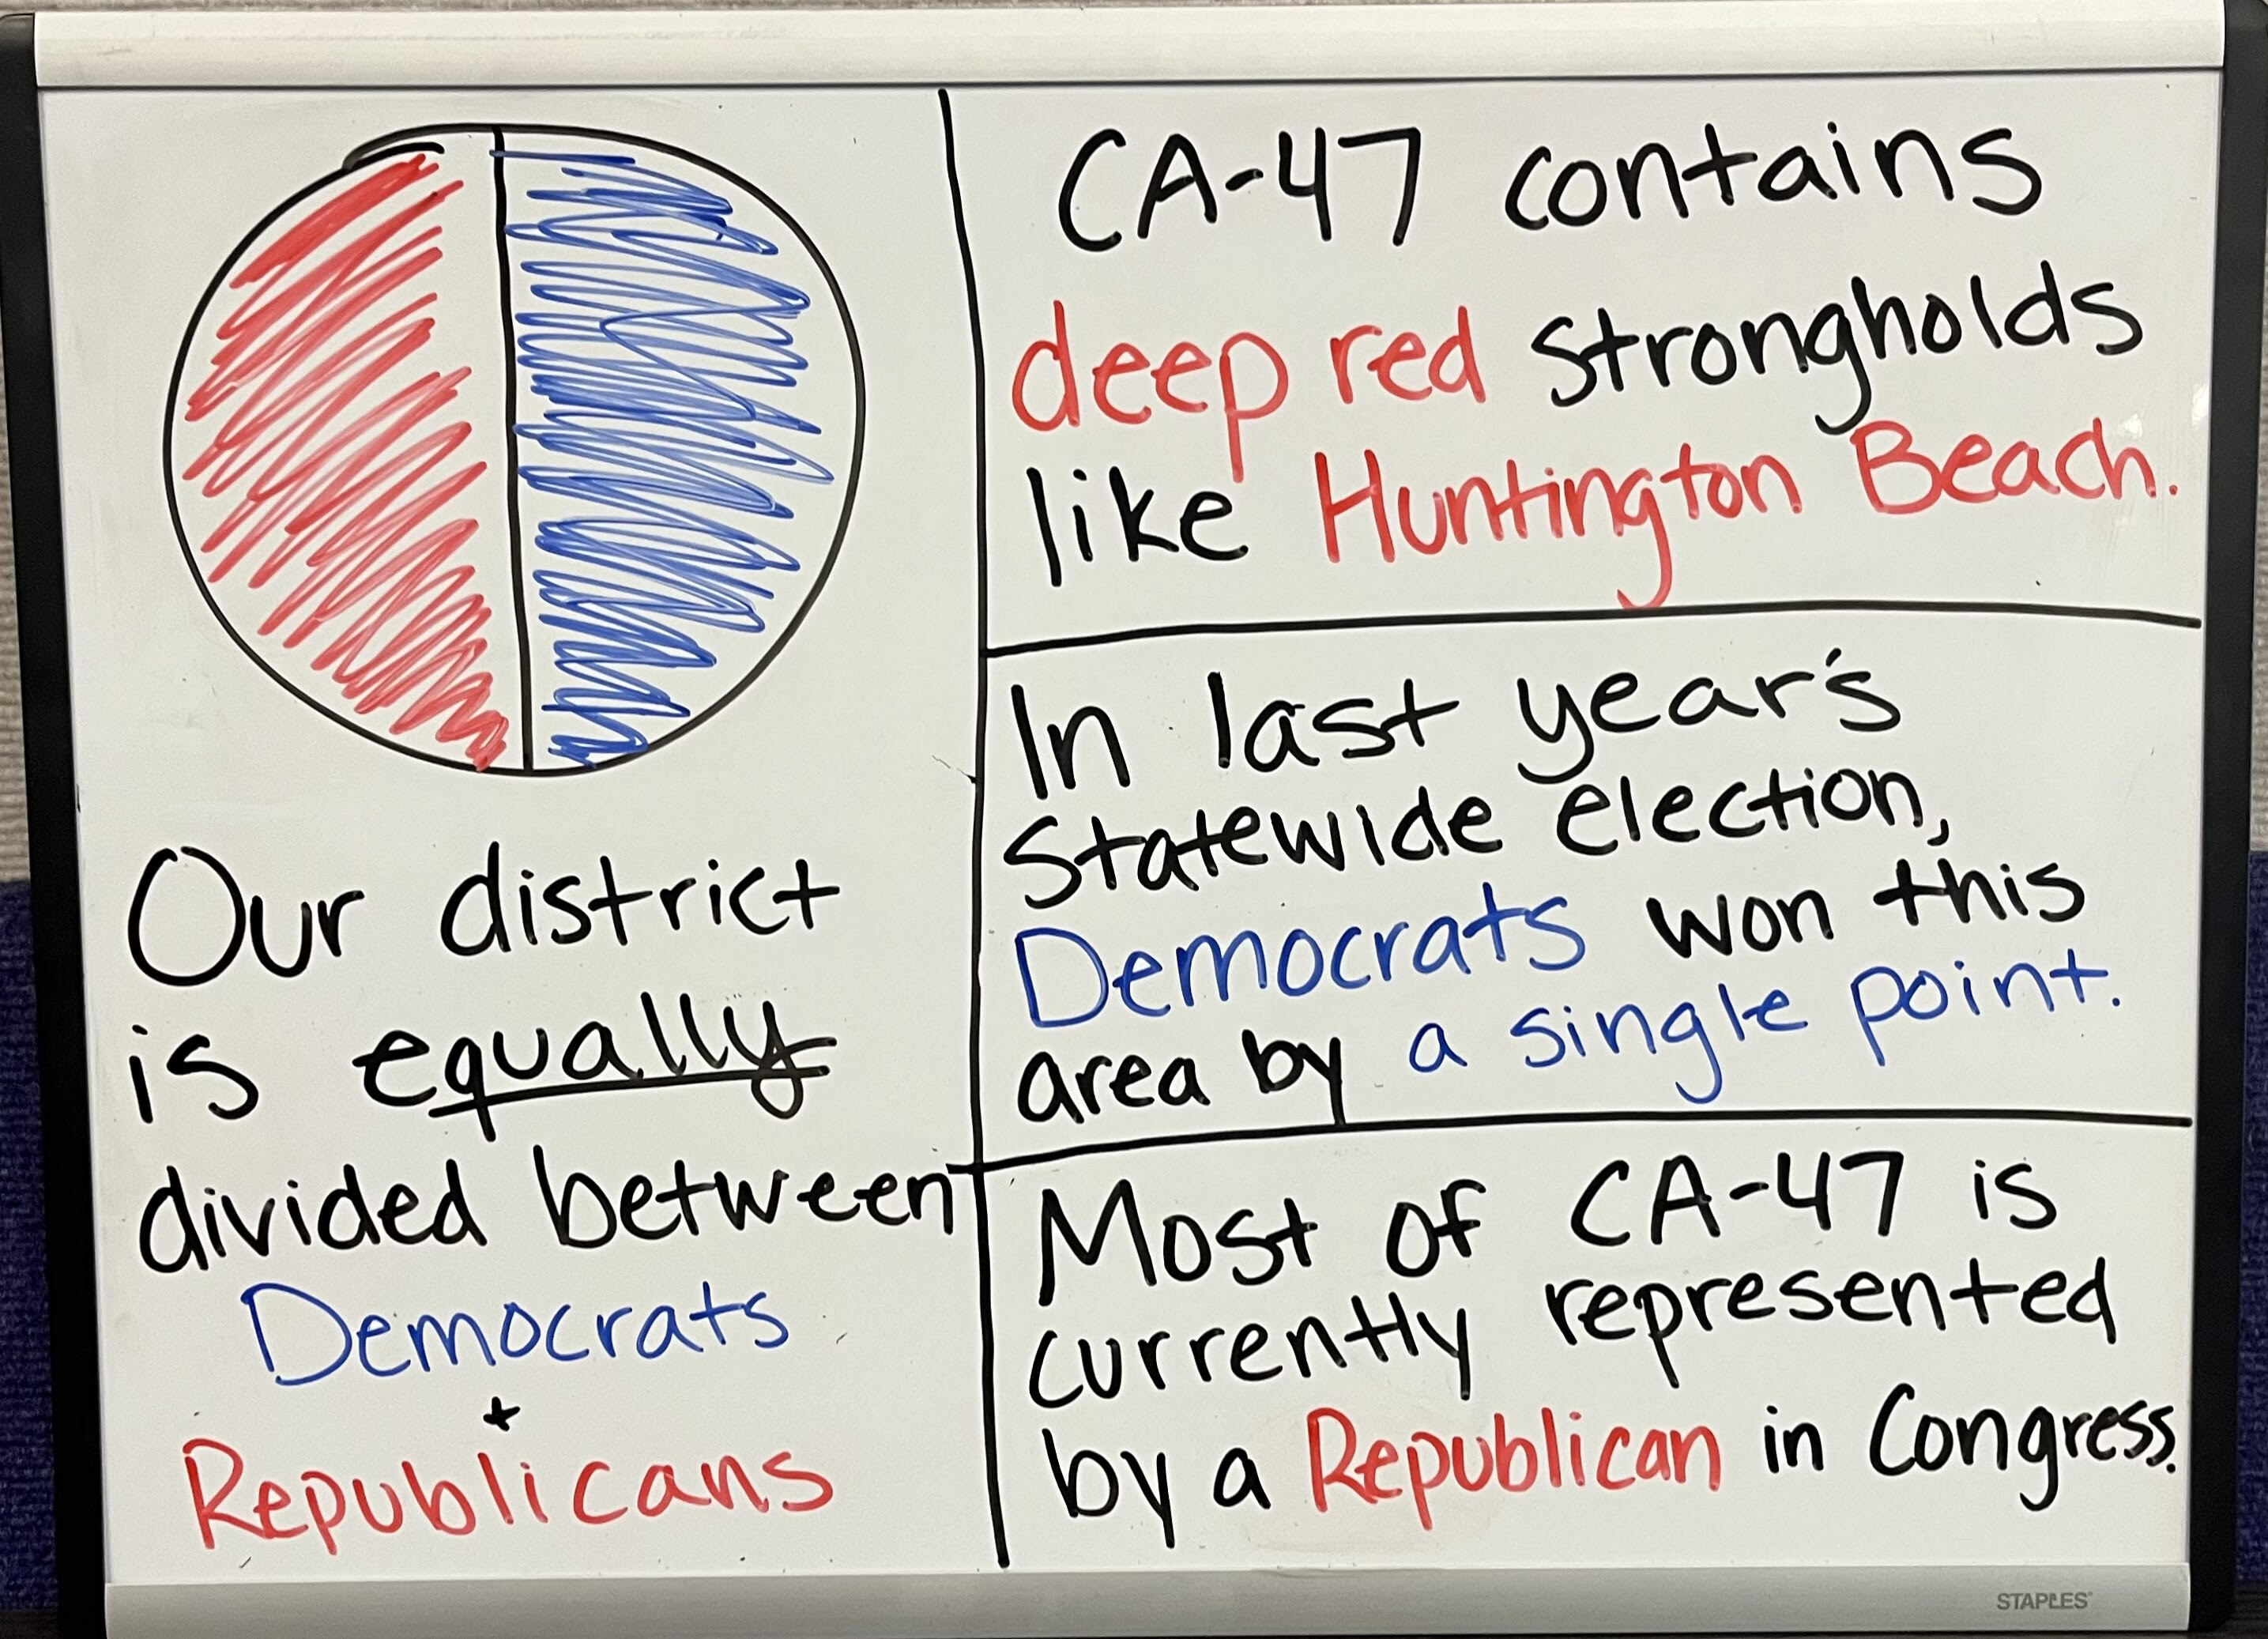 Our district
is equally
divided between
Democrats
+
Republicans
CA-47 contains
deep red strongholds
like Huntington Beach.
In last year's
Statewide election,
Democrats won this
area by a single point.
Most of CA-47 is
currently represented
by a Republican in Congress.
STAPLES